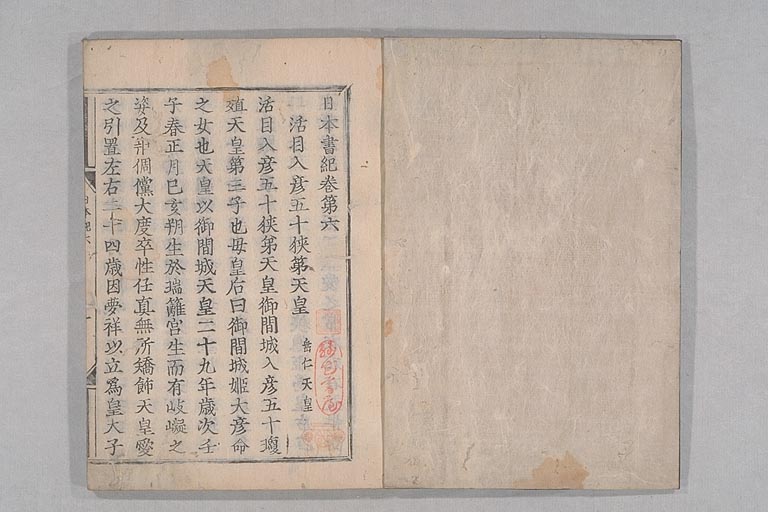 日本書紀卷第六
活目入彦五十狹第天皇
垂仁天皇
活目入彦五十狹第天皇御間城入彦五十瓊
殖天皇第三子也母皇后曰御間城姬大彦命
之女也天皇以御間城天皇二十九年歲次壬
子春正月巳亥朔生於瑞籬宮生而有岐嶷之
姿及壯倜儻大度卒性任眞無所矯飾天皇愛
之引置左右二十四歲因夢祥以立爲皇大子